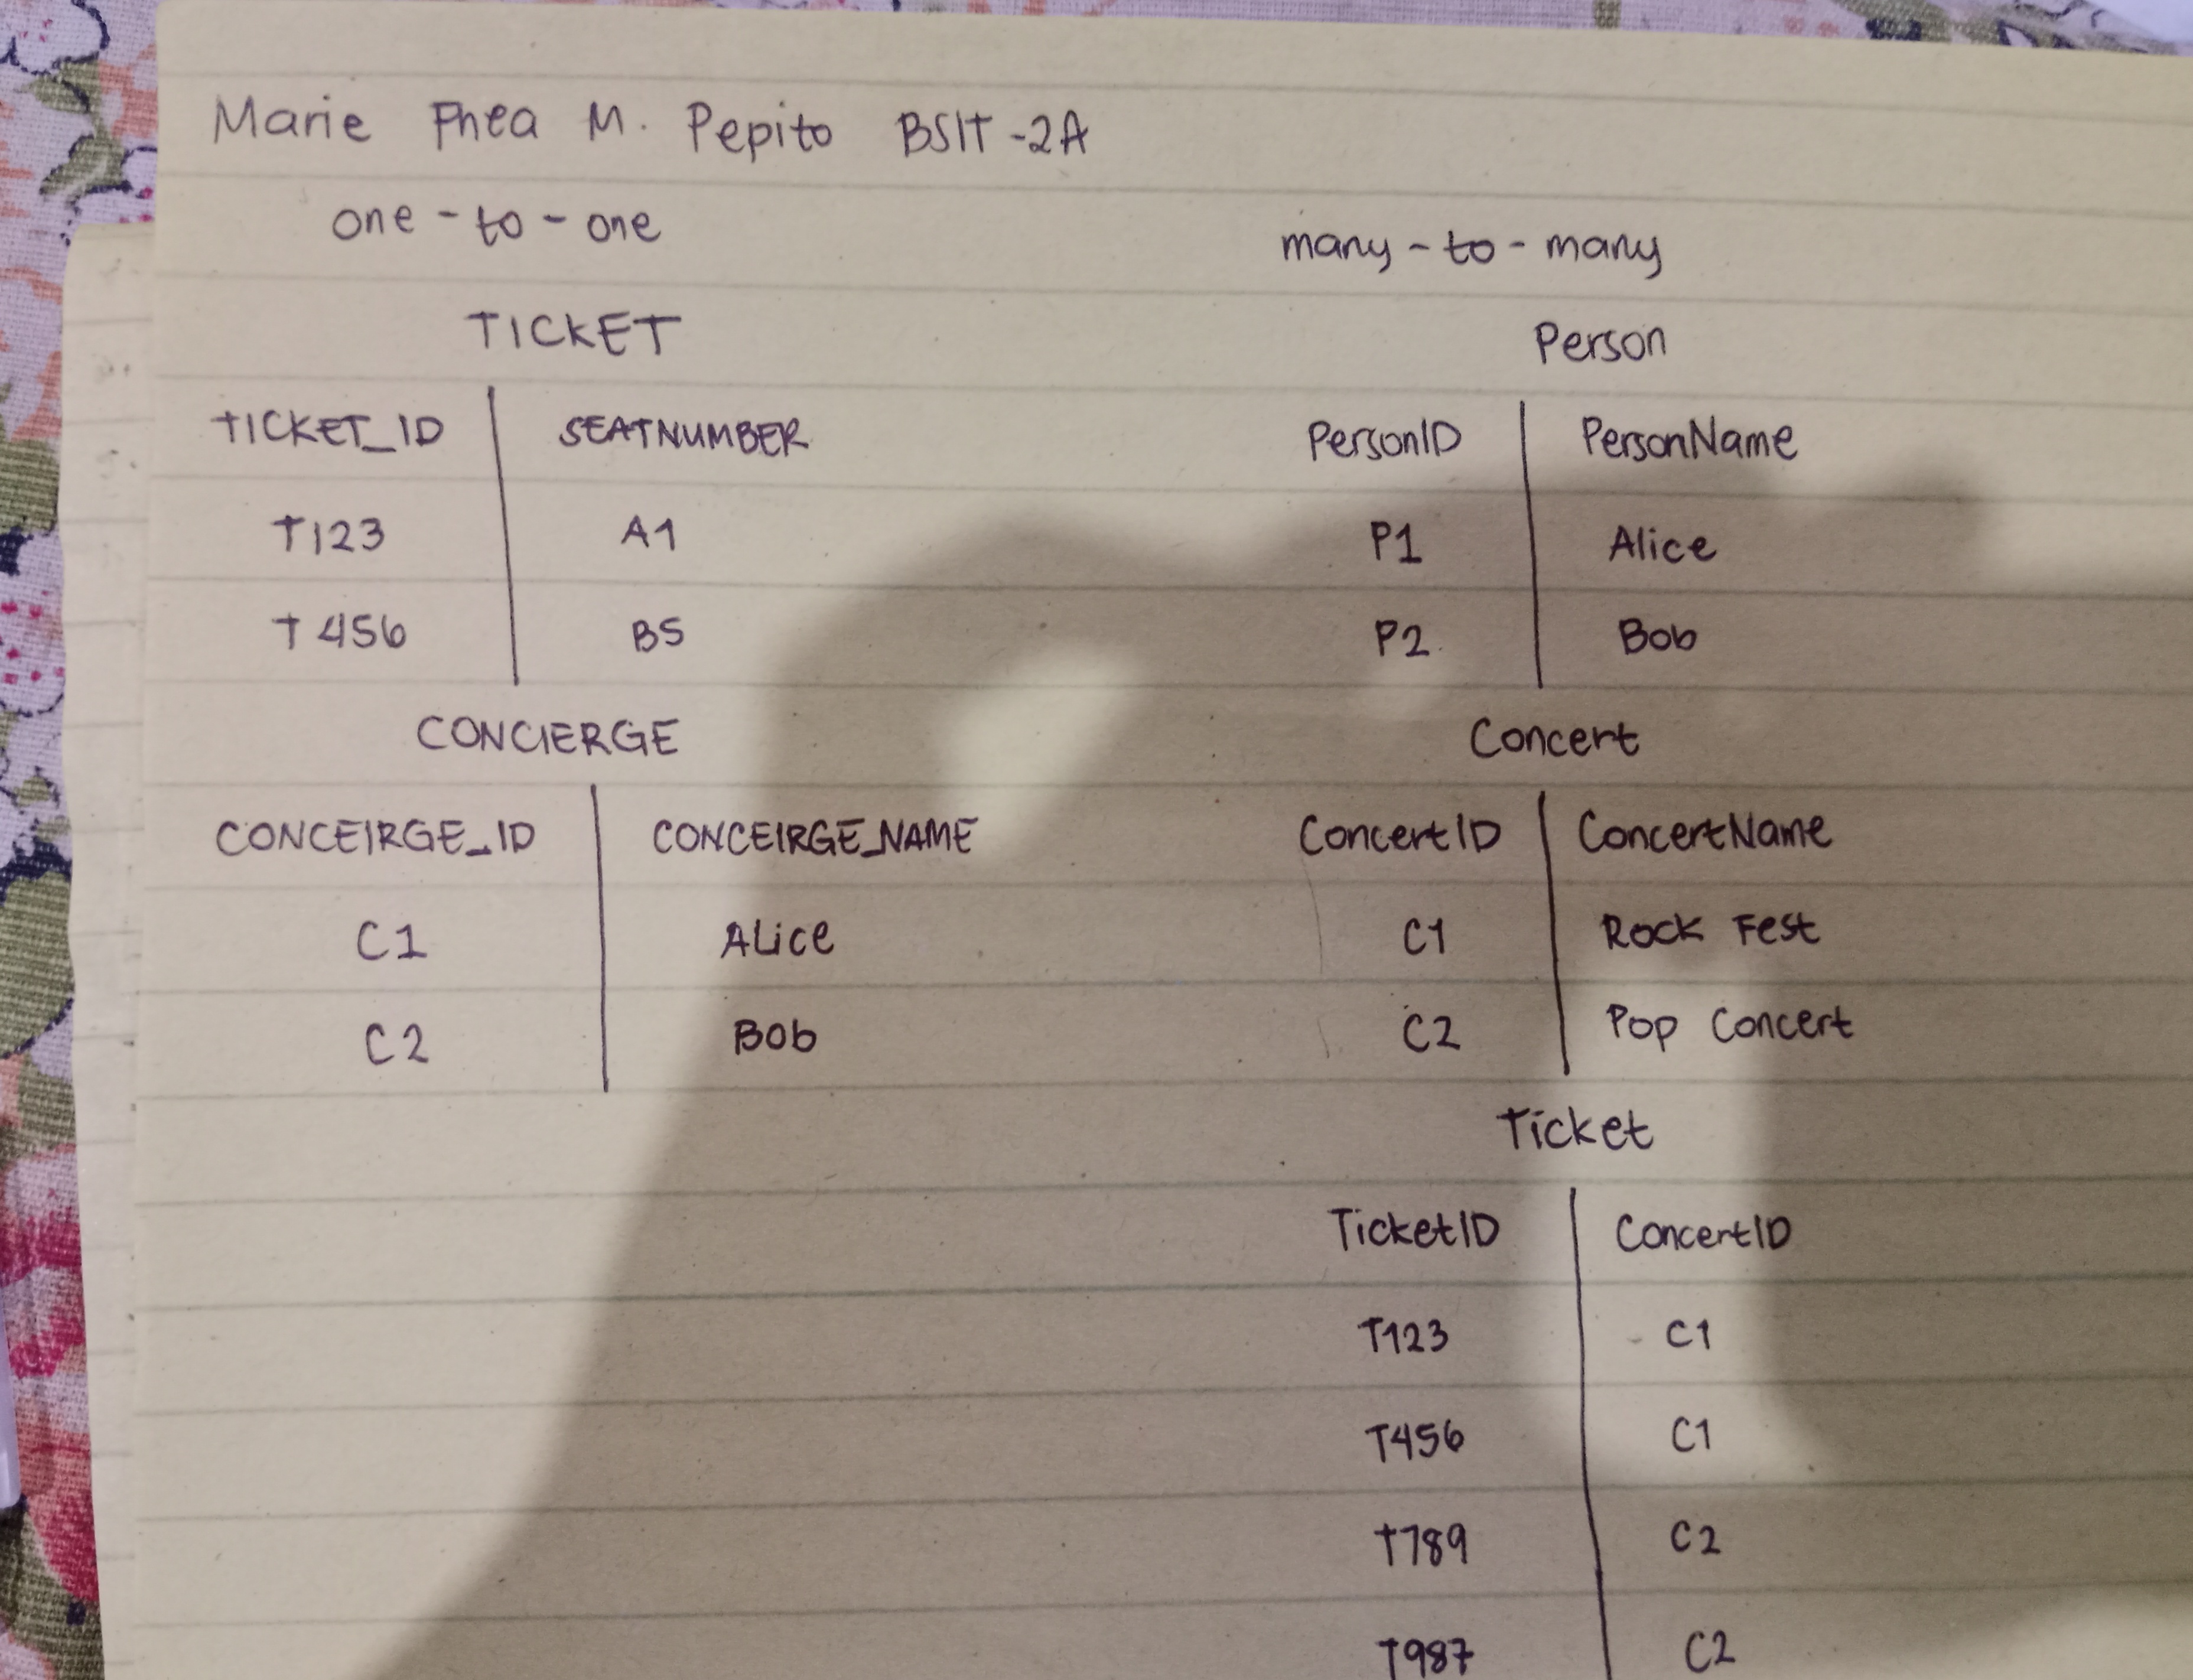 Marie Fhea M. Pepito BSIT-2A
one-to-one
TICKET
TICKET_ID SEATNUMBER
T123 A1
T456 B5
CONCIERGE
CONCEIRGE_ID CONCEIRGE_NAME
C1 ALice
C2 Bob
many-to-many
Person
PersonID PersonName
P1 Alice
P2 Bob
Concert
ConcertID ConcertName
C1 Rock Fest
C2 Pop Concert
Ticket
TicketID ConcertID
T123 C1
T456 C1
T789 C2
T987 C2